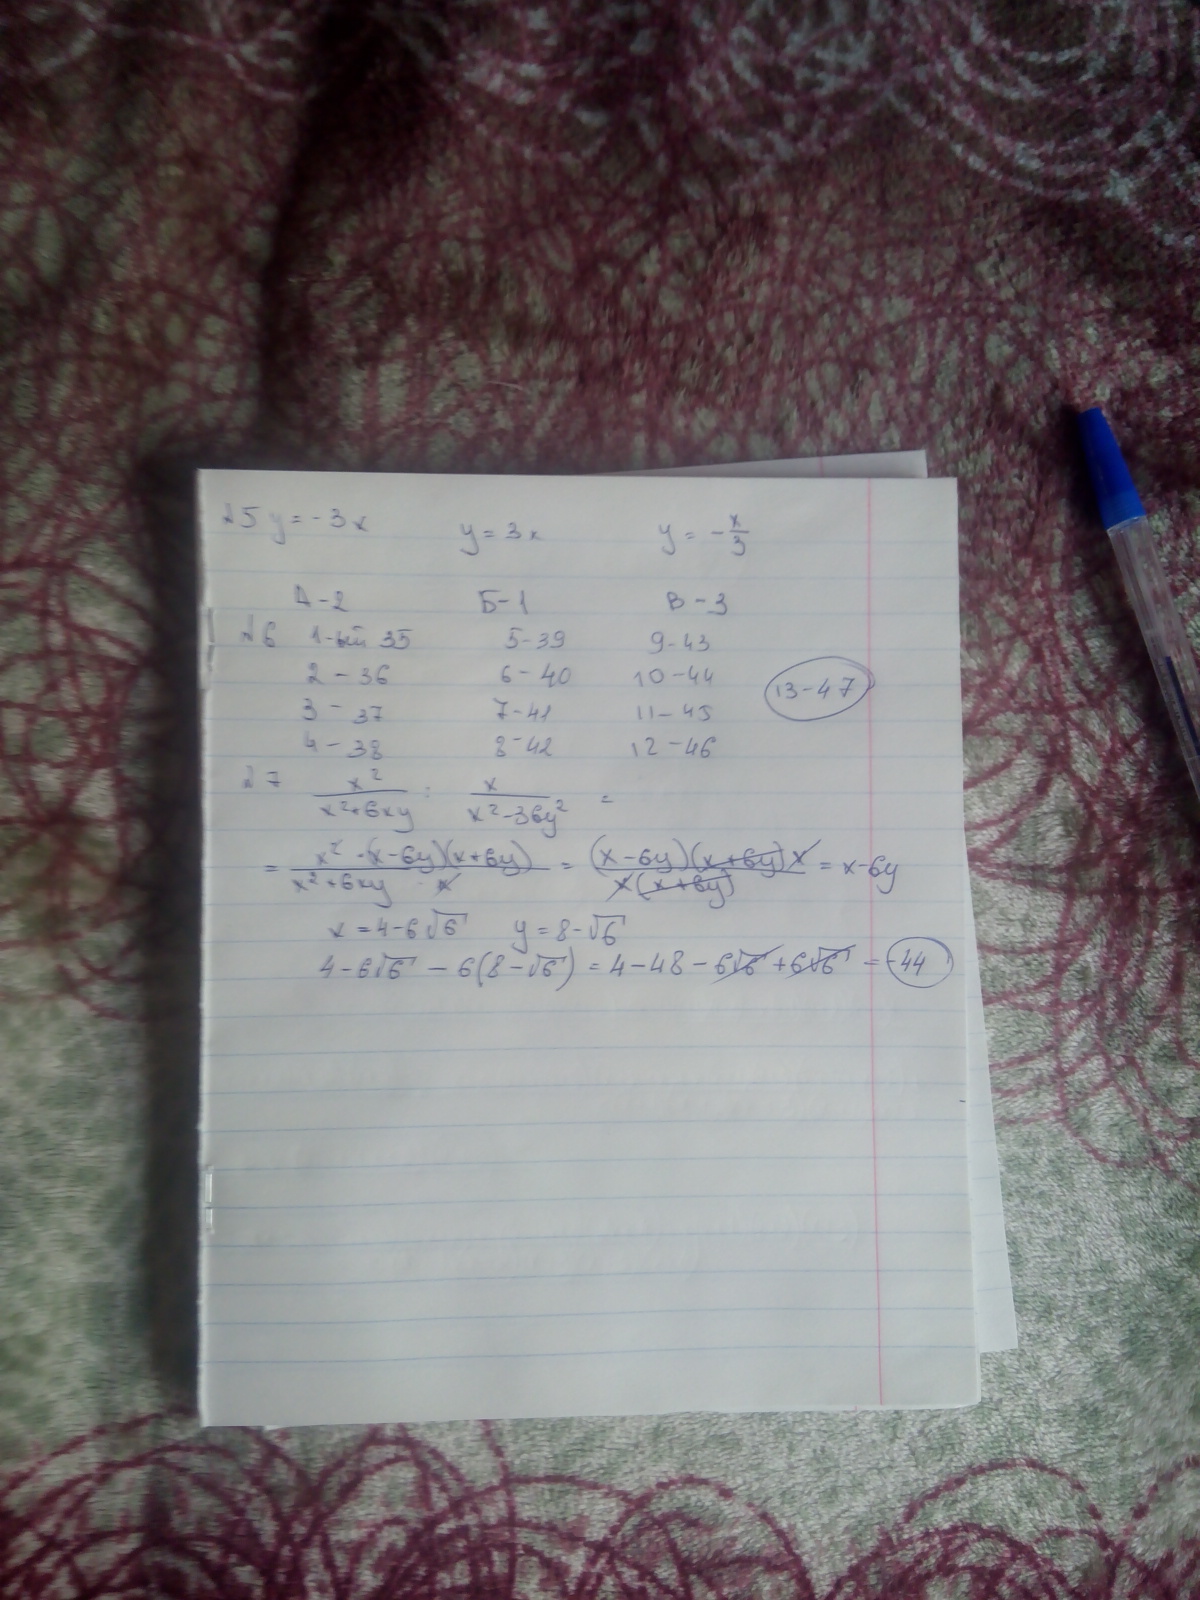 №5 y = -3x y = 3x y = -x/3
А-2 Б-1 В-3
№6 1-ый 35 5-39 9-43
2-36 6-40 10-44 13-47
3-37 7-41 11-45
4-38 8-42 12-46
№7 x²/(x²+6xy) : x/(x²-36y²) =
= x²·(x-6y)(x+6y)/(x²+6xy · x) = (x-6y)(x+6y)x/(x(x+6y)) = x-6y
x = 4-6√6 y = 8-√6
4-6√6 - 6(8-√6) = 4-48-6√6+6√6 = -44